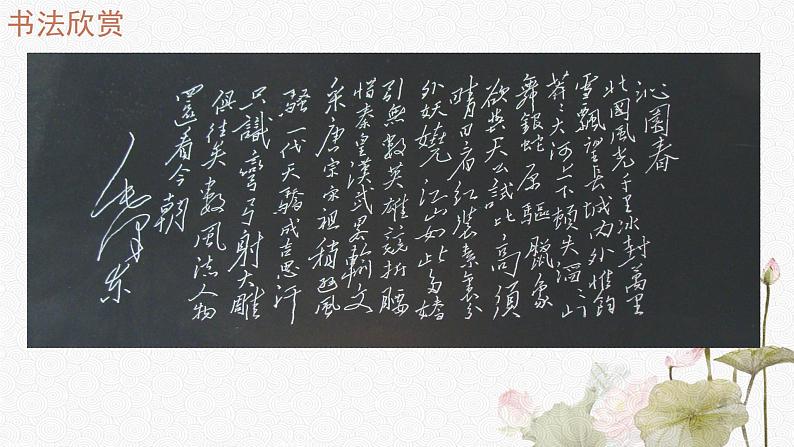 书法欣赏
沁園春
北國風光千里冰封萬里
雪飄望長城内外惟餘
莽〻大河上下頓失滔〻山
舞銀蛇原驅臘象
欲與天公試比高須
晴日看紅裝素裹分
外妖嬈江山如此多嬌
引無數英雄競折腰
惜秦皇漢武畧輸文
采唐宗宋祖稍遜風
騷一代天驕成吉思汗
只識彎弓射大雕
俱往矣數風流人物
還看今朝
毛澤東